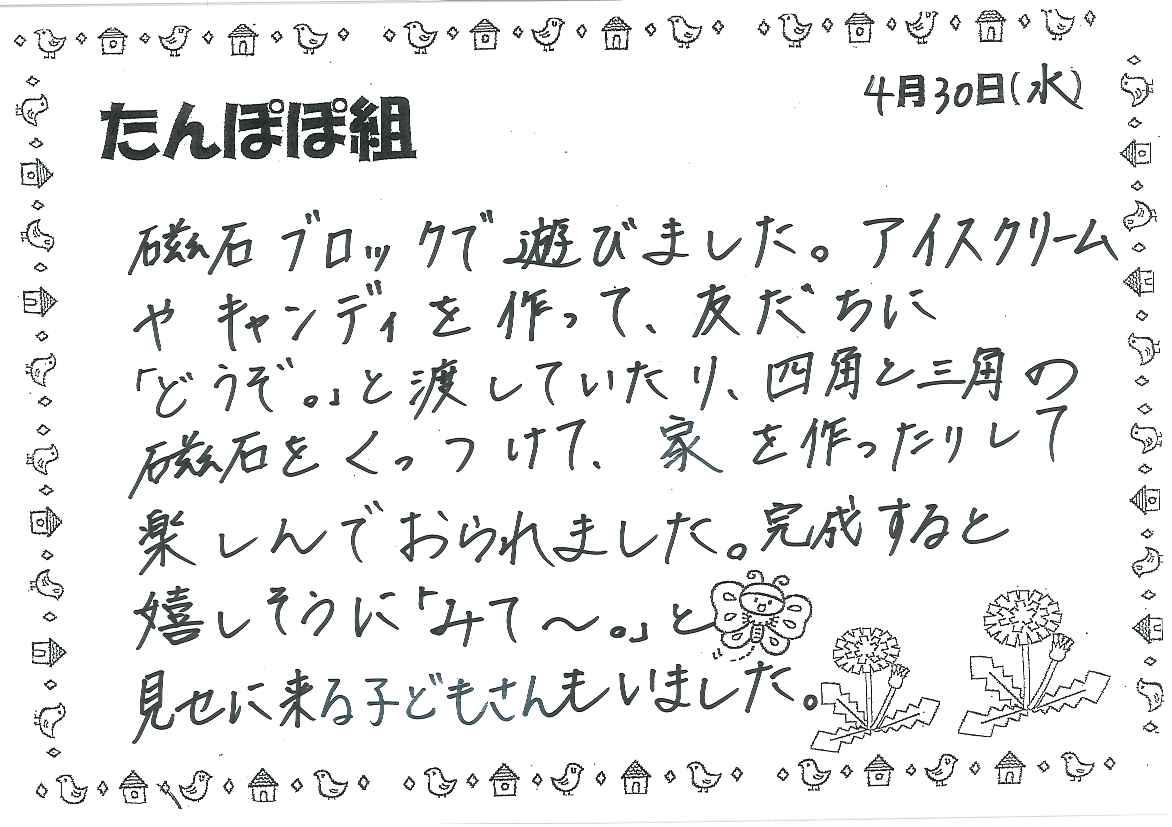 4月30日(水)
たんぽぽ組
磁石ブロックで遊びました。アイスクリーム
やキャンディを作って、友だちに
「どうぞ。」と渡していたり、四角と三角の
磁石をくっつけて、家を作ったりして
楽しんでおられました。完成すると
嬉しそうに「みて～。」と
見せに来る子どもさんもいました。